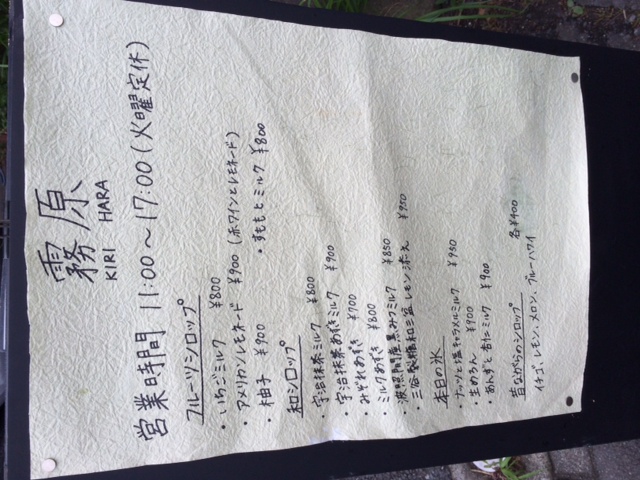 霧原
KIRI HARA
営業時間 11:00〜17:00(火曜定休)
フルーツシロップ
・いちごミルク ¥800
・アメリカンレモネード ¥900(赤ワインとレモネード)
・柚子 ¥900 ・すももとミルク ¥800
和シロップ
・宇治抹茶ミルク ¥800
・宇治抹茶あずきミルク ¥900
・みぞれあずき ¥700
・ミルクあずき ¥800
・波照間産黒みつミルク ¥850
・三谷製糖和三盆 レモン添え ¥950
本日の氷
・ナッツと塩キャラメルミルク ¥950
・生めろん ¥900
・あんずと杏仁ミルク ¥900
昔ながらのシロップ 各¥400
イチゴ、レモン、メロン、ブルーハワイ